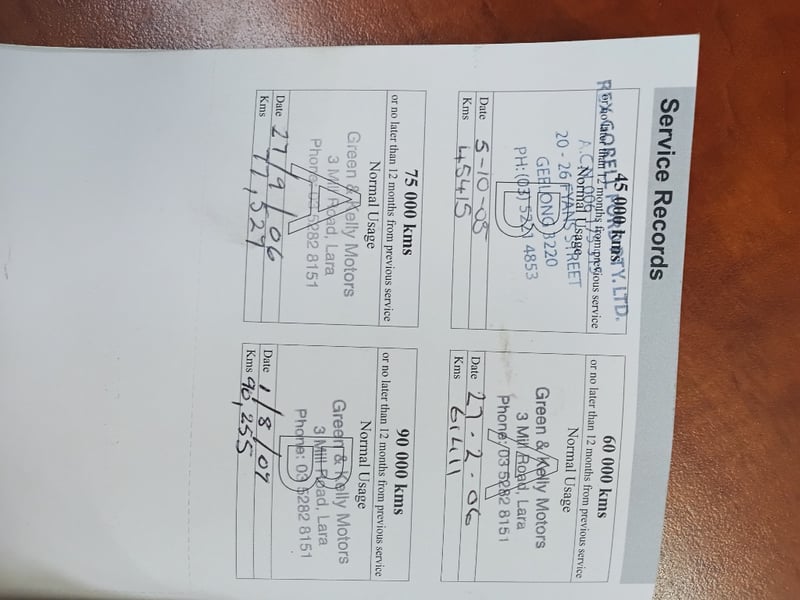 Service Records
45 000 kms
or no later than 12 months from previous service
Normal Usage
B
REX GORELL PTY. LTD.
A.C.N.
20 - 26 RYANS STREET
GEELONG 3220
PH: (03) 4853
Date 5-10-05
Kms 45415
60 000 kms
or no later than 12 months from previous service
Normal Usage
A
Green & Kelly Motors
3 Mill Road, Lara
Phone: 03 5282 8151
Date 27.2.06
Kms 61411
75 000 kms
or no later than 12 months from previous service
Normal Usage
A
Green & Kelly Motors
3 Mill Road, Lara
Phone: 03 5282 8151
Date 27/9/06
Kms 77,529
90 000 kms
or no later than 12 months from previous service
Normal Usage
B
Green & Kelly Motors
3 Mill Road, Lara
Phone: 03 5282 8151
Date 1/8/07
Kms 90,255